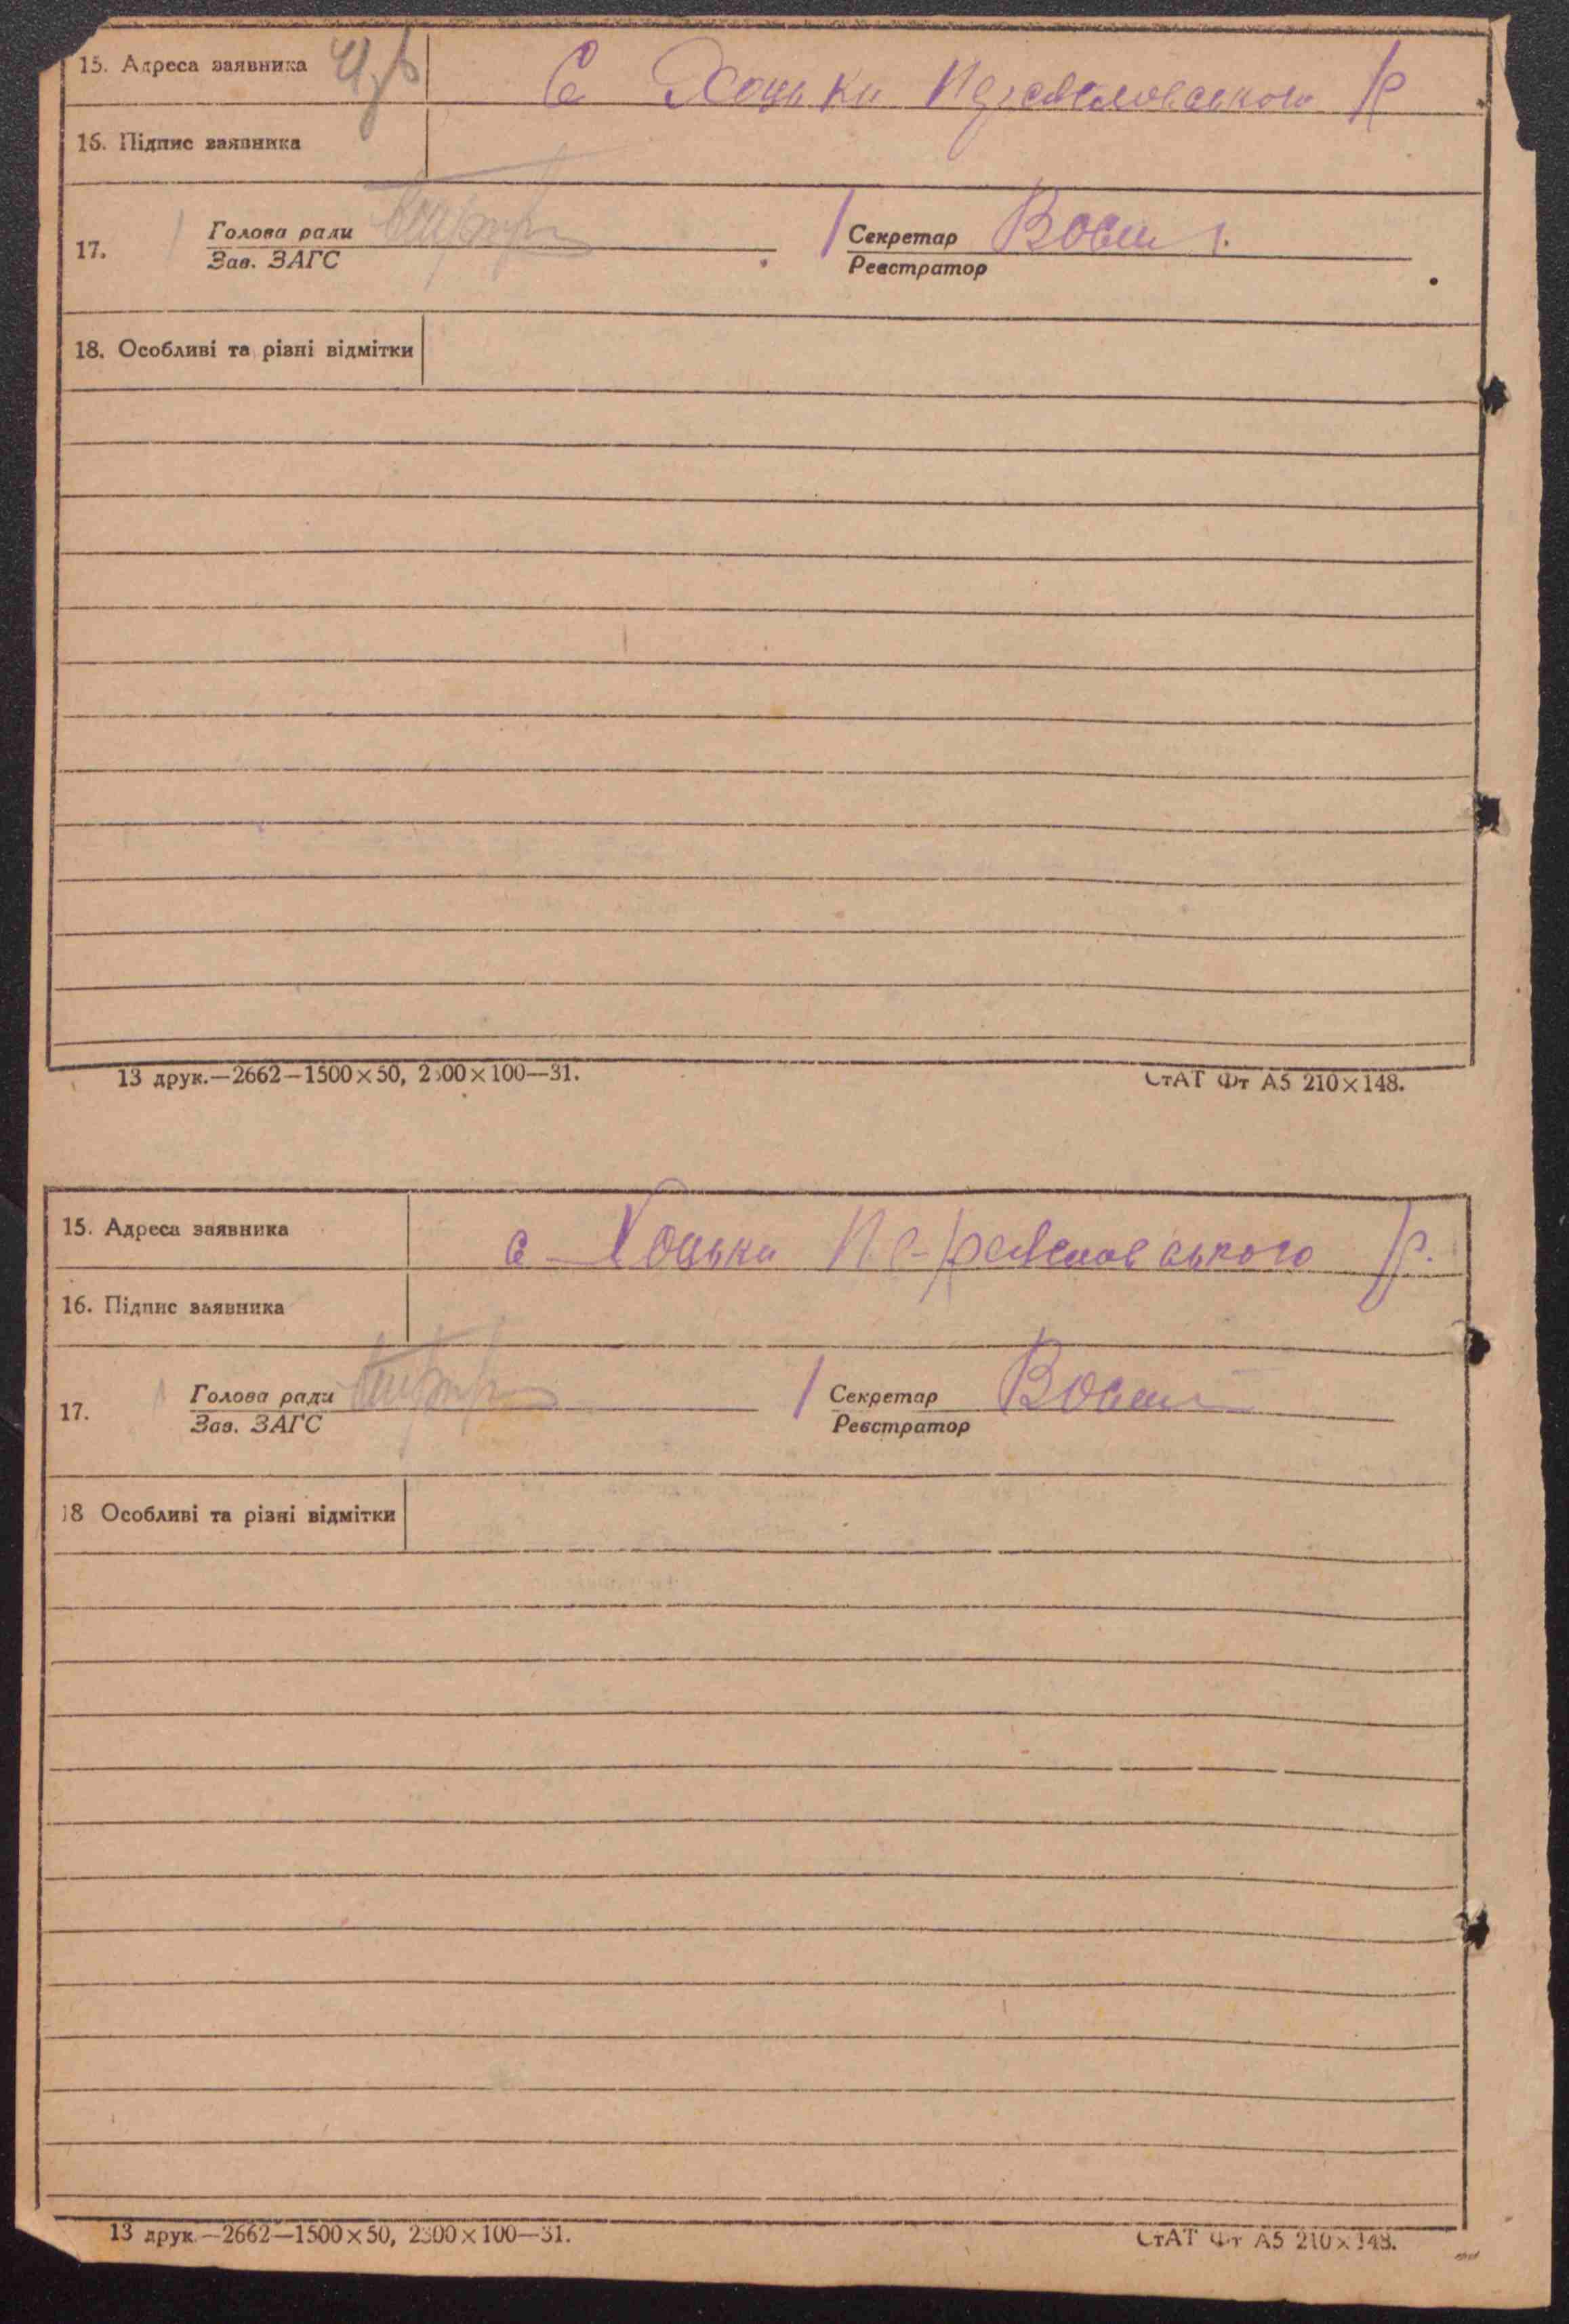 15. Адреса заявника с Хоцьки Переяславського р
16. Підпис заявника
17. Голова ради Секретар
Зав. ЗАГС Реєстратор
18. Особливі та різні відмітки
13 друк.—2662—1500×50, 2300×100—31. СтАТ Фт А5 210×148.
15. Адреса заявника с Хоцьки Переяславського р.
16. Підпис заявника
17. Голова ради Секретар
Зав. ЗАГС Реєстратор
18 Особливі та різні відмітки
13 друк.—2662—1500×50, 2300×100—31. СтАТ Фт А5 210×148.